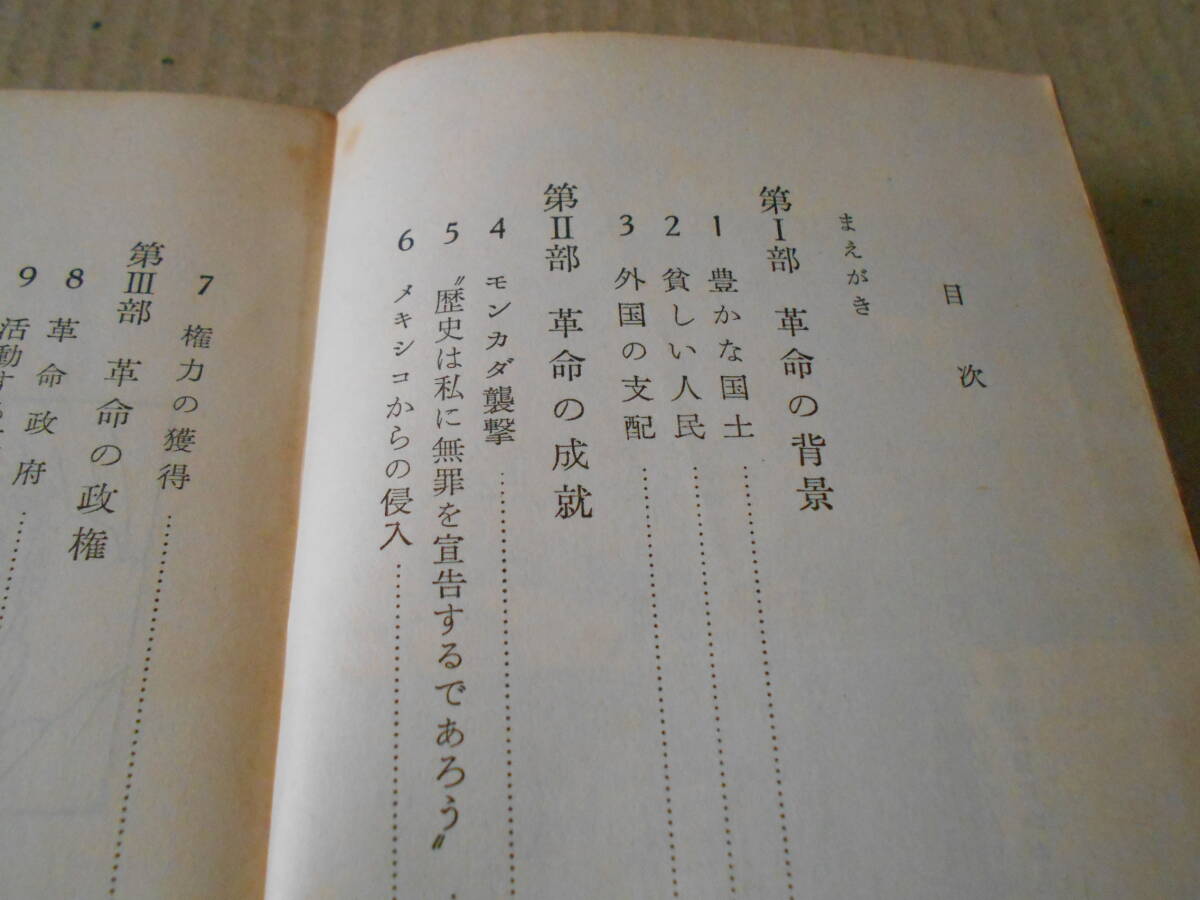 目次
まえがき
第Ⅰ部 革命の背景
1 豊かな国土
2 貧しい人民
3 外国の支配
第Ⅱ部 革命の成就
4 モンカダ襲撃
5 〝歴史は私に無罪を宣告するであろう〟
6 メキシコからの侵入
7 権力の獲得
第Ⅲ部 革命の政権
8 革命政府
9 活動す